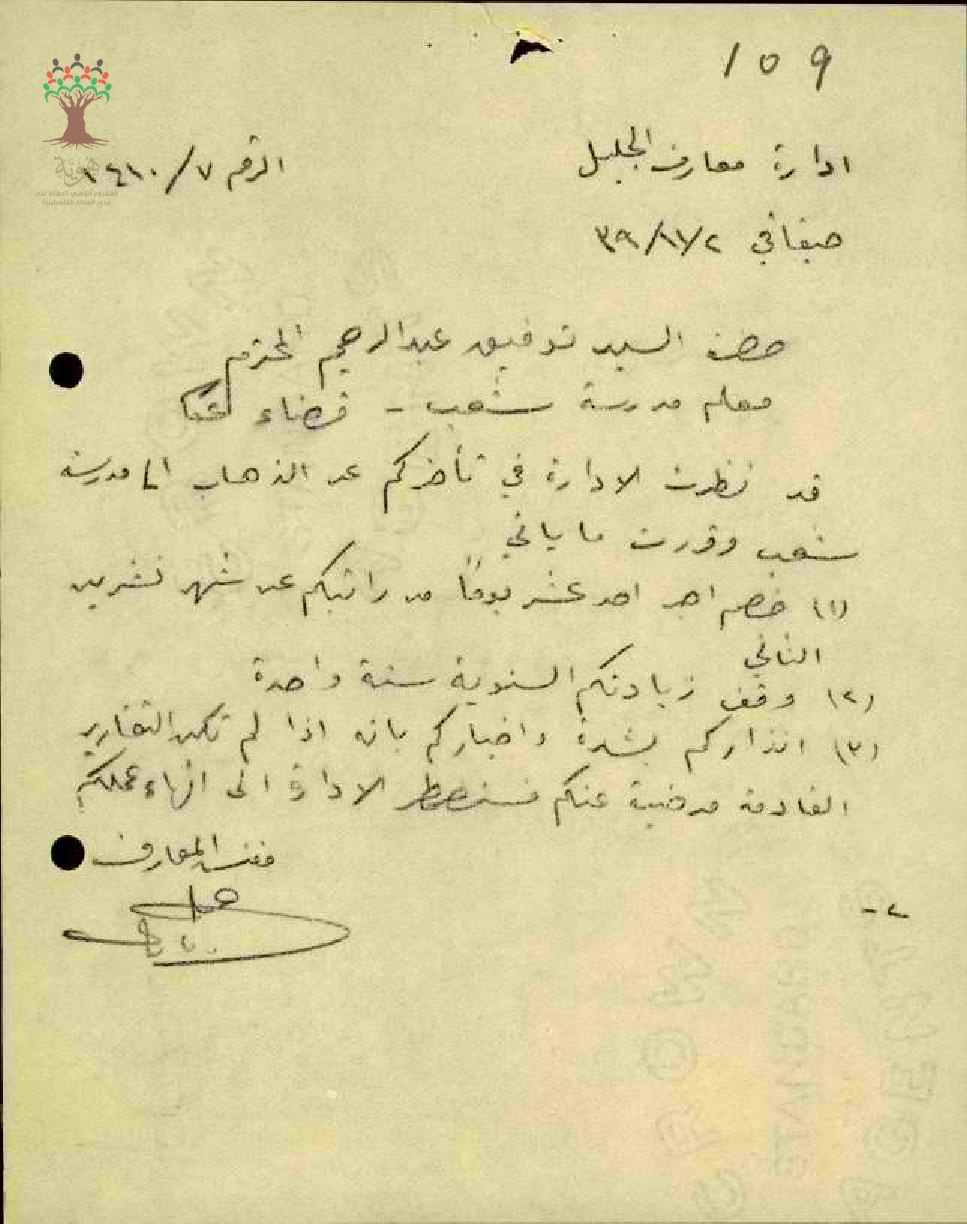 109
ادارة معارف الجليل
الرقم ٧/١٤١٠
صبفاني ٣٩/١١/٢
هوية
حضرة السيد توفيق عبدالرحيم المحترم
معلم مدرسة شعب - قضاء عكا
قد نظرت الادارة في تأخركم عن الذهاب الى مدرسة
شعب وقررت ما ياتي
(١) خصم اجر احد عشر يوماً من راتبكم عن شهر تشرين
الثاني
(٢) وقف زيادتكم السنوية سنة واحدة
(٣) انذاركم بشدة واخباركم بانه اذا لم تكن التقارير
القادمة مرضية عنكم فستضطر الادارة الى انهاء عملكم
مفتش المعارف